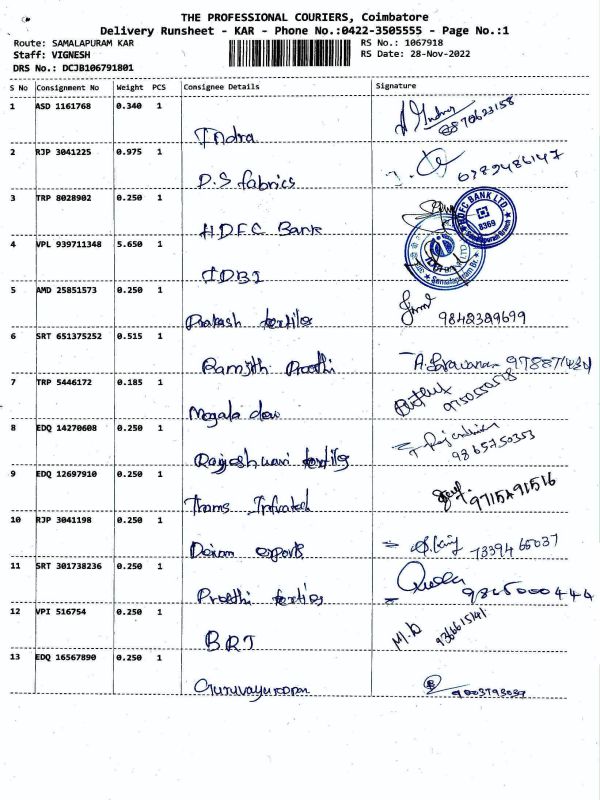 THE PROFESSIONAL COURIERS, Coimbatore
Delivery Runsheet - KAR - Phone No.:0422-3505555 - Page No.:1
Route: SAMALAPURAM KAR
RS No.: 1067918
Staff: VIGNESH
RS Date: 28-Nov-2022
DRS No.: DCJB106791801
S No Consignment No Weight PCS Consignee Details Signature
1 ASD 1161768 0.340 1
Indra
2 RJP 3041225 0.975 1
D.S fabrics
3 TRP 8028902 0.250 1
HDFC Bank
HDFC BANK LTD
8369
4 VPL 939711348 5.650 1
IDBI
5 AMD 25851573 0.250 1
Prakash textiles 9842329699
6 SRT 651375252 0.515 1
Ramjith Preethi
7 TRP 5446172 0.185 1
Megala devi
8 EDQ 14270608 0.250 1
Rajeshwari textiles 9865750353
9 EDQ 12697910 0.250 1
Thams
10 RJP 3041198 0.250 1
exports 7339466037
11 SRT 301738236 0.250 1
Preethi textiles 9865000444
12 VPI 516754 0.250 1
BRT M.D 9366615141
13 EDQ 16567890 0.250 1
Guruvayurappan